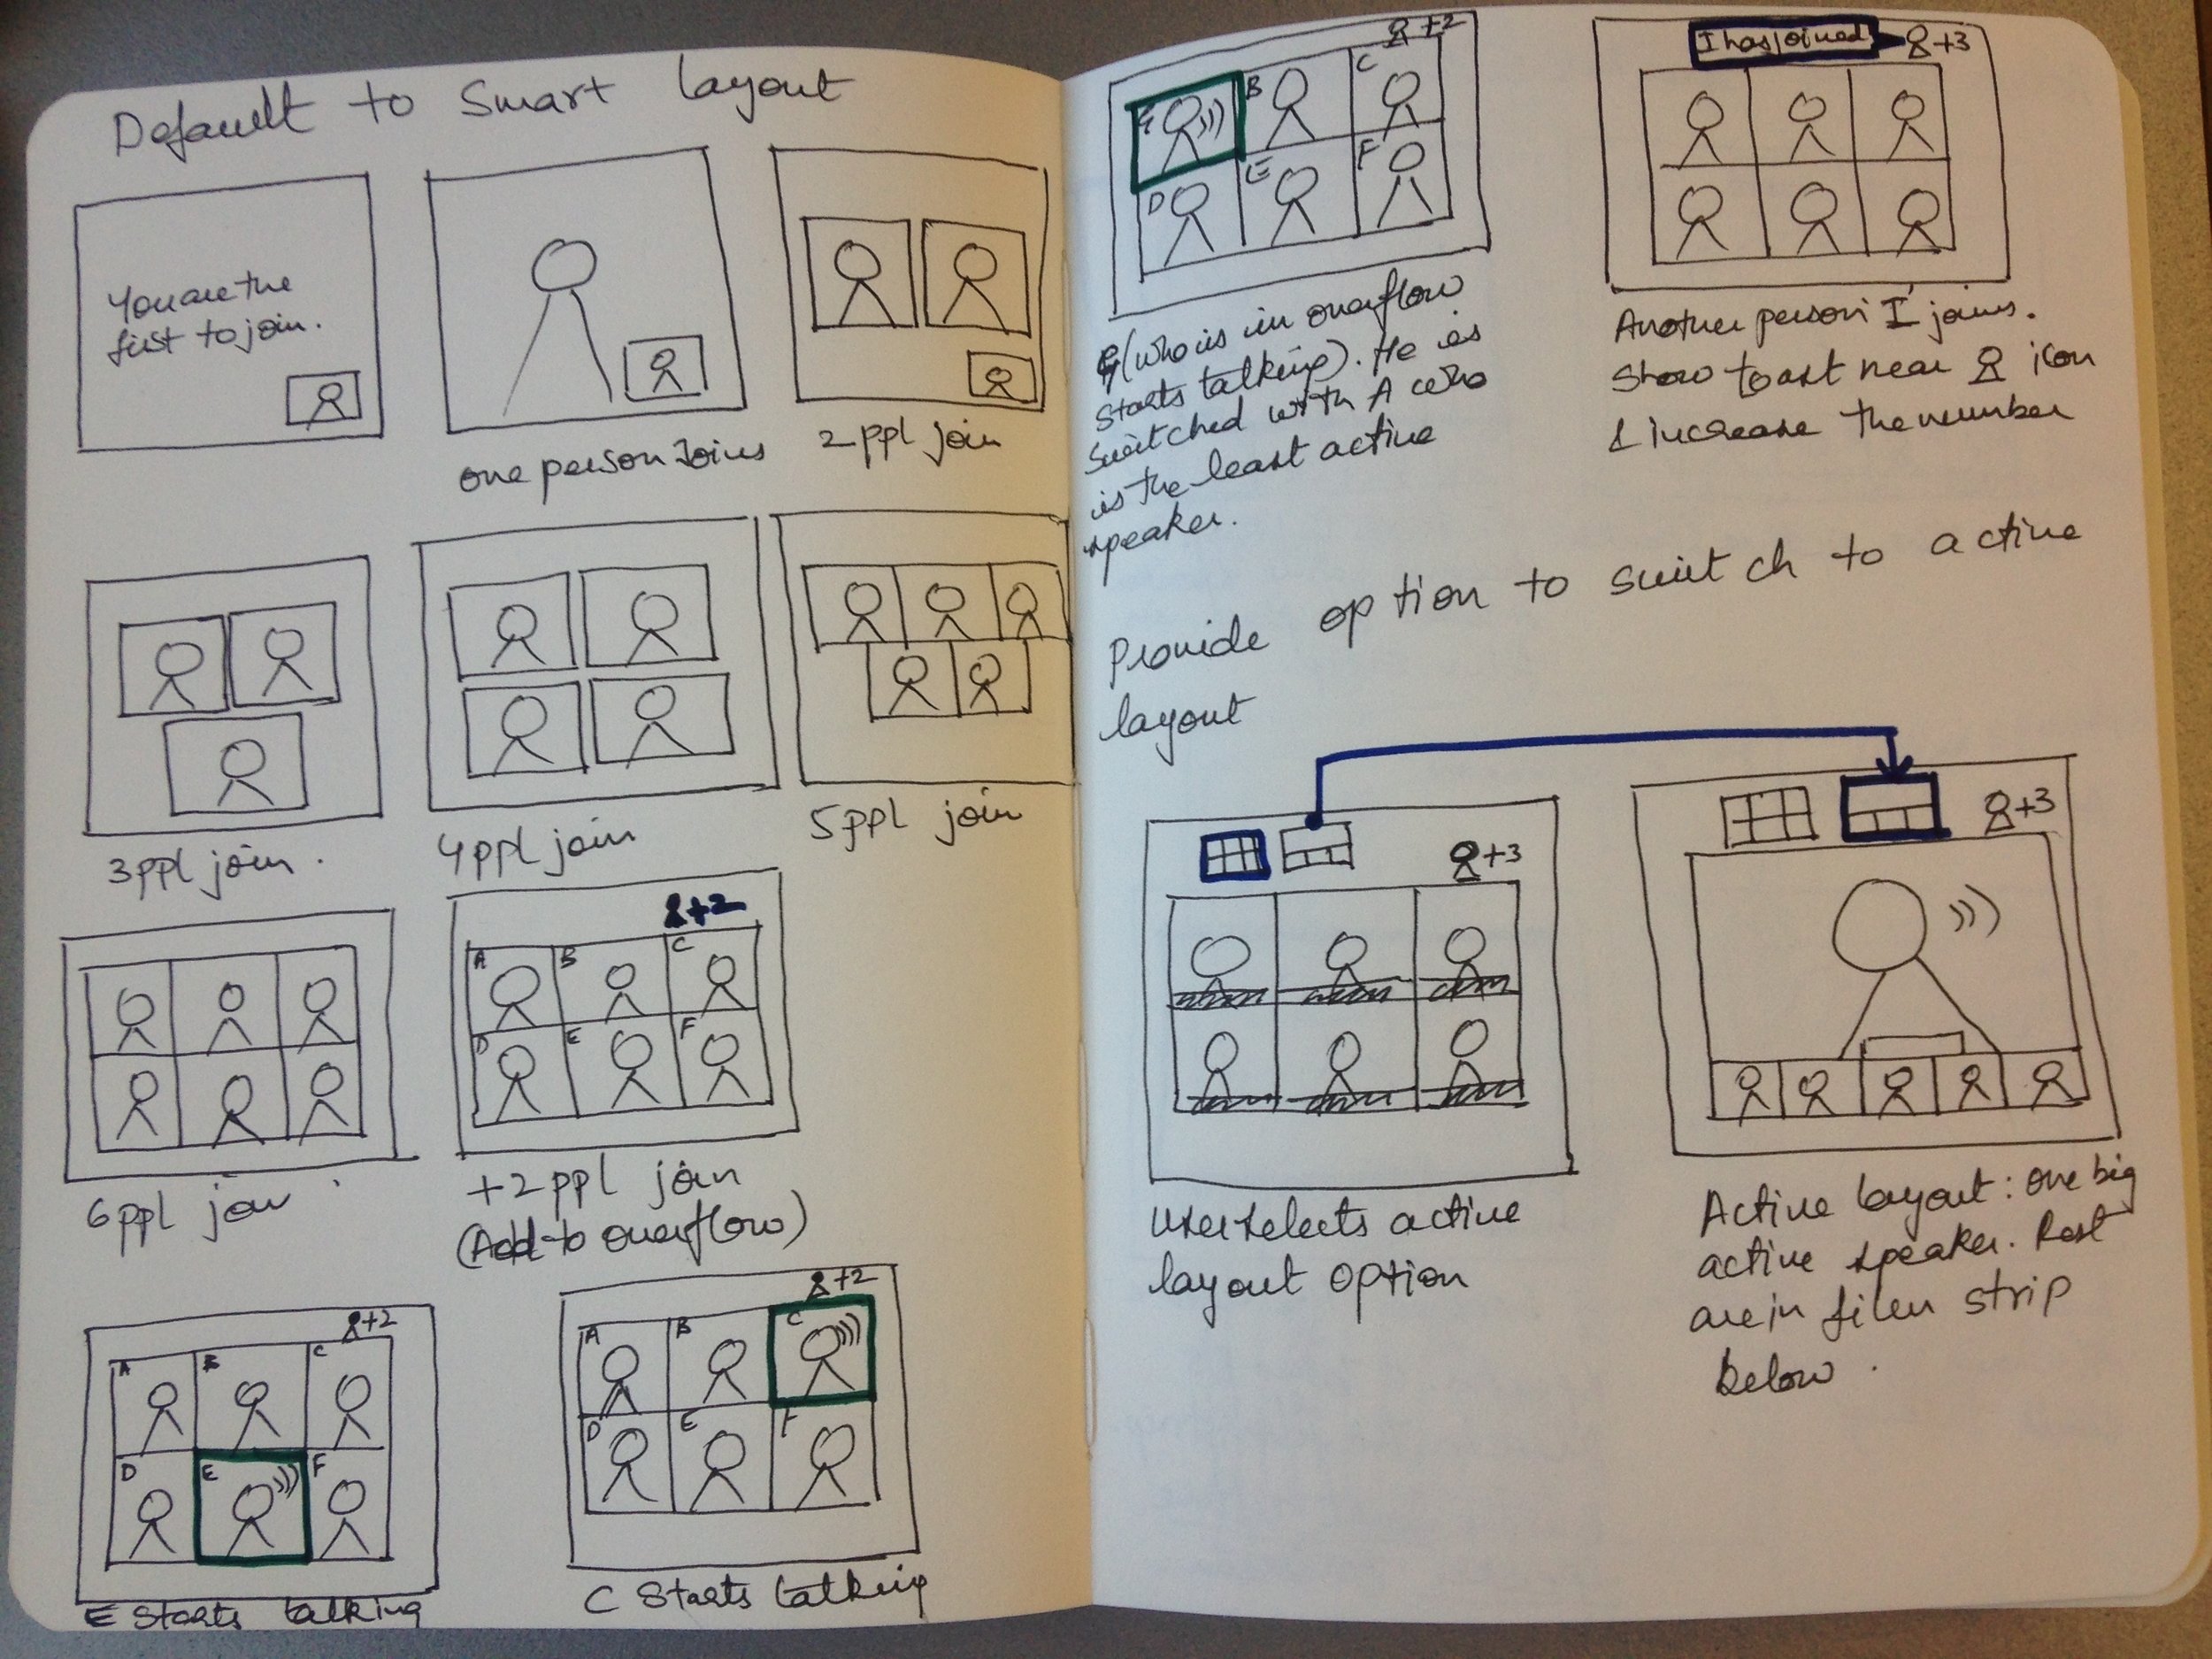 Default to Smart layout
You are the
first to join.
one person Joins
2 ppl join
3 ppl join.
4 ppl join
5 ppl join
6 ppl join
+2
A B C
D E F
+2 ppl join
(Add to overflow)
+2
A B C
D E F
E Starts talking
+2
A B C
D E F
C Starts talking
+2
G B C
D E F
G (who is in overflow
Starts talking). He is
switched with A who
is the least active
speaker.
I has joined +3
Another person I joins.
Show toast near icon
& increase the number
Provide option to switch to active
layout
+3
User selects active
layout option
+3
Active layout: one big
active speaker. Rest
are in film strip
below.